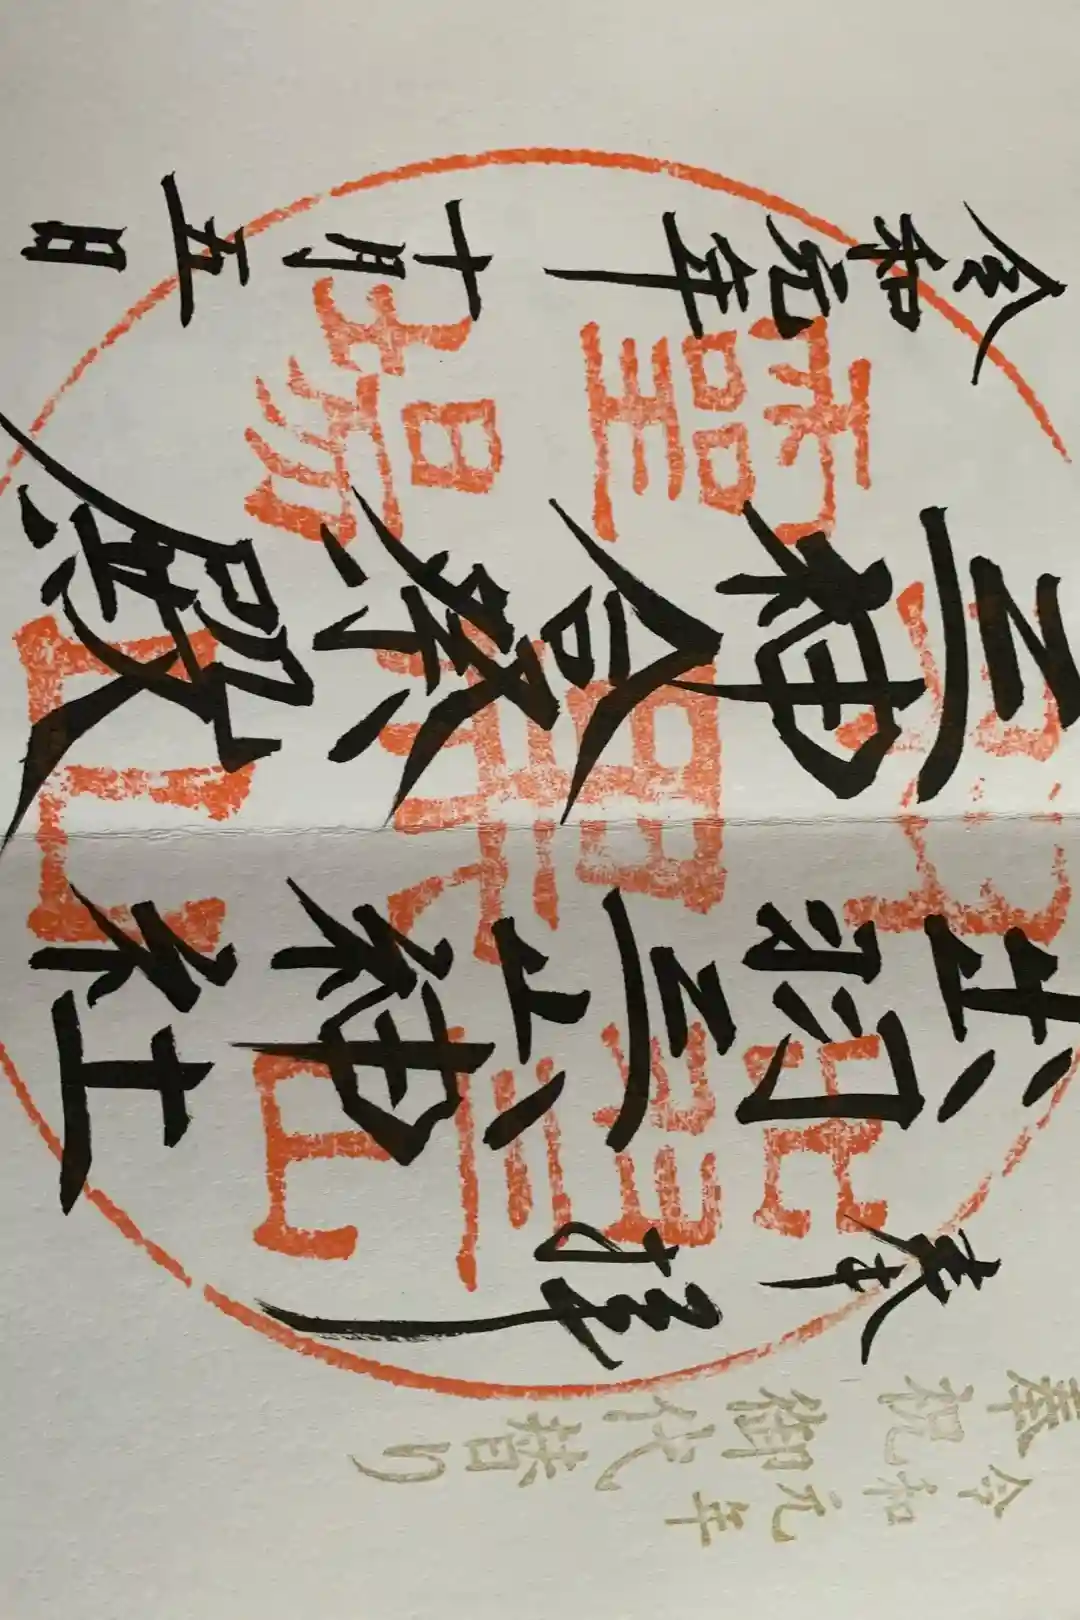 令和元年
奉祝御代替り
奉拝
出羽三山神社
三神合祭殿
令和元年十月五日